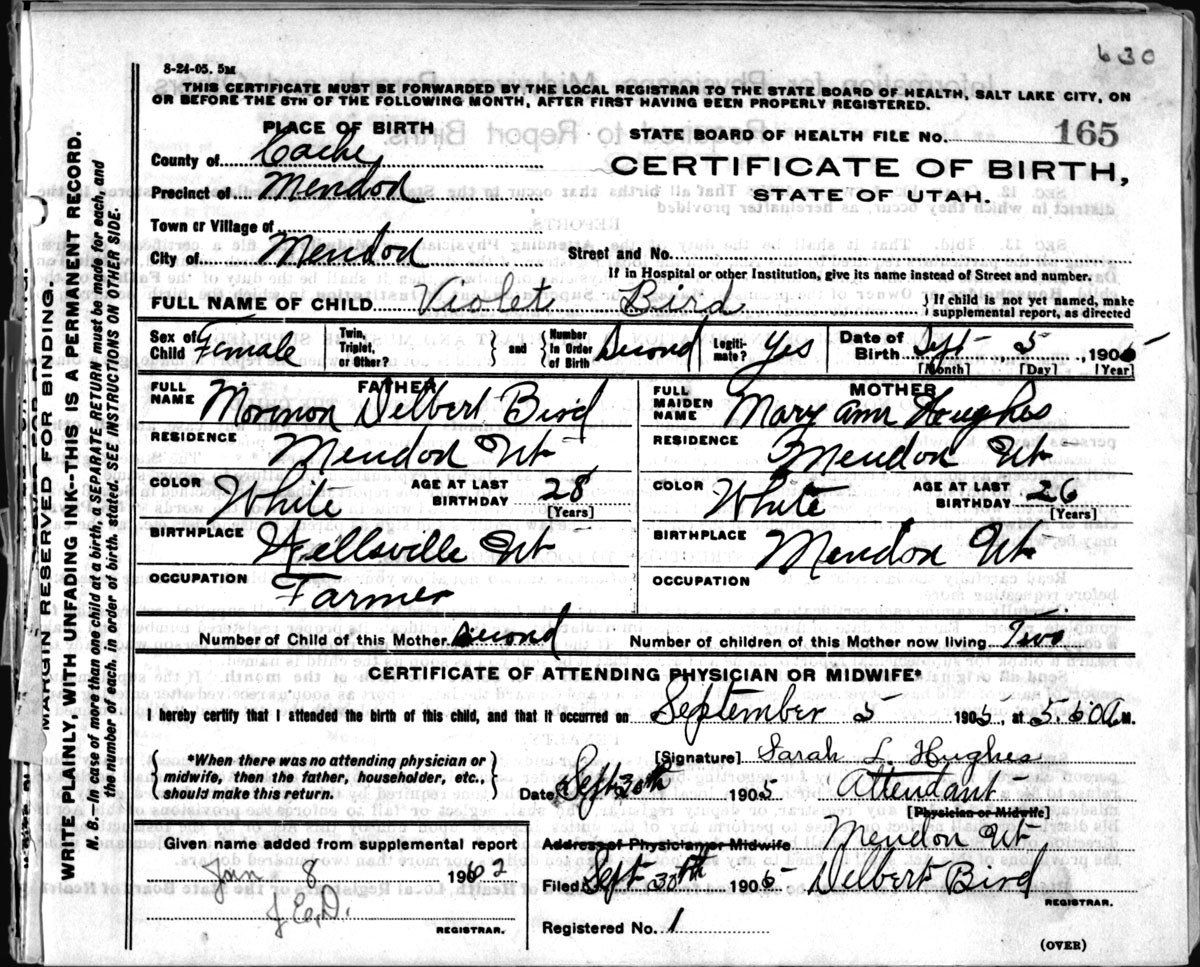 630
8-24-05. 5M
THIS CERTIFICATE MUST BE FORWARDED BY THE LOCAL REGISTRAR TO THE STATE BOARD OF HEALTH, SALT LAKE CITY, ON
OR BEFORE THE 5TH OF THE FOLLOWING MONTH, AFTER FIRST HAVING BEEN PROPERLY REGISTERED.
PLACE OF BIRTH
STATE BOARD OF HEALTH FILE No. 165
County of Cache
CERTIFICATE OF BIRTH,
Precinct of Mendon
STATE OF UTAH.
Town or Village of
City of Mendon Street and No.
If in Hospital or other Institution, give its name instead of Street and number.
FULL NAME OF CHILD Violet Bird } If child is not yet named, make supplemental report, as directed
Sex of Child Female Twin, Triplet, or Other? } and { Number In Order of Birth Second Legiti-mate? Yes Date of Birth Sept 5, 1905
[Month] [Day] [Year]
FATHER MOTHER
FULL NAME Mormon Delbert Bird FULL MAIDEN NAME Mary Ann Hughes
RESIDENCE Mendon Ut RESIDENCE Mendon Ut
COLOR White AGE AT LAST BIRTHDAY 28 [Years] COLOR White AGE AT LAST BIRTHDAY 26 [Years]
BIRTHPLACE Wellsville Ut BIRTHPLACE Mendon Ut
OCCUPATION Farmer OCCUPATION
Number of Child of this Mother Second Number of children of this Mother now living Two
CERTIFICATE OF ATTENDING PHYSICIAN OR MIDWIFE*
I hereby certify that I attended the birth of this child, and that it occurred on September 5 1905, at M.
{ *When there was no attending physician or midwife, then the father, householder, etc., should make this return. }
[Signature] Sarah L. Hughes
Date Sept 30th 1905 Attendant
[Physician or Midwife]
Given name added from supplemental report
Address of Physician or Midwife Mendon Ut
Jan 8 19
Filed Sept 30th 1905 Delbert Bird
REGISTRAR.
REGISTRAR.
Registered No. 1
(OVER)
MARGIN RESERVED FOR BINDING.
WRITE PLAINLY, WITH UNFADING INK--THIS IS A PERMANENT RECORD.
N. B.--In case of more than one child at a birth, a SEPARATE RETURN must be made for each, and
the number of each, in order of birth, stated. SEE INSTRUCTIONS ON OTHER SIDE.